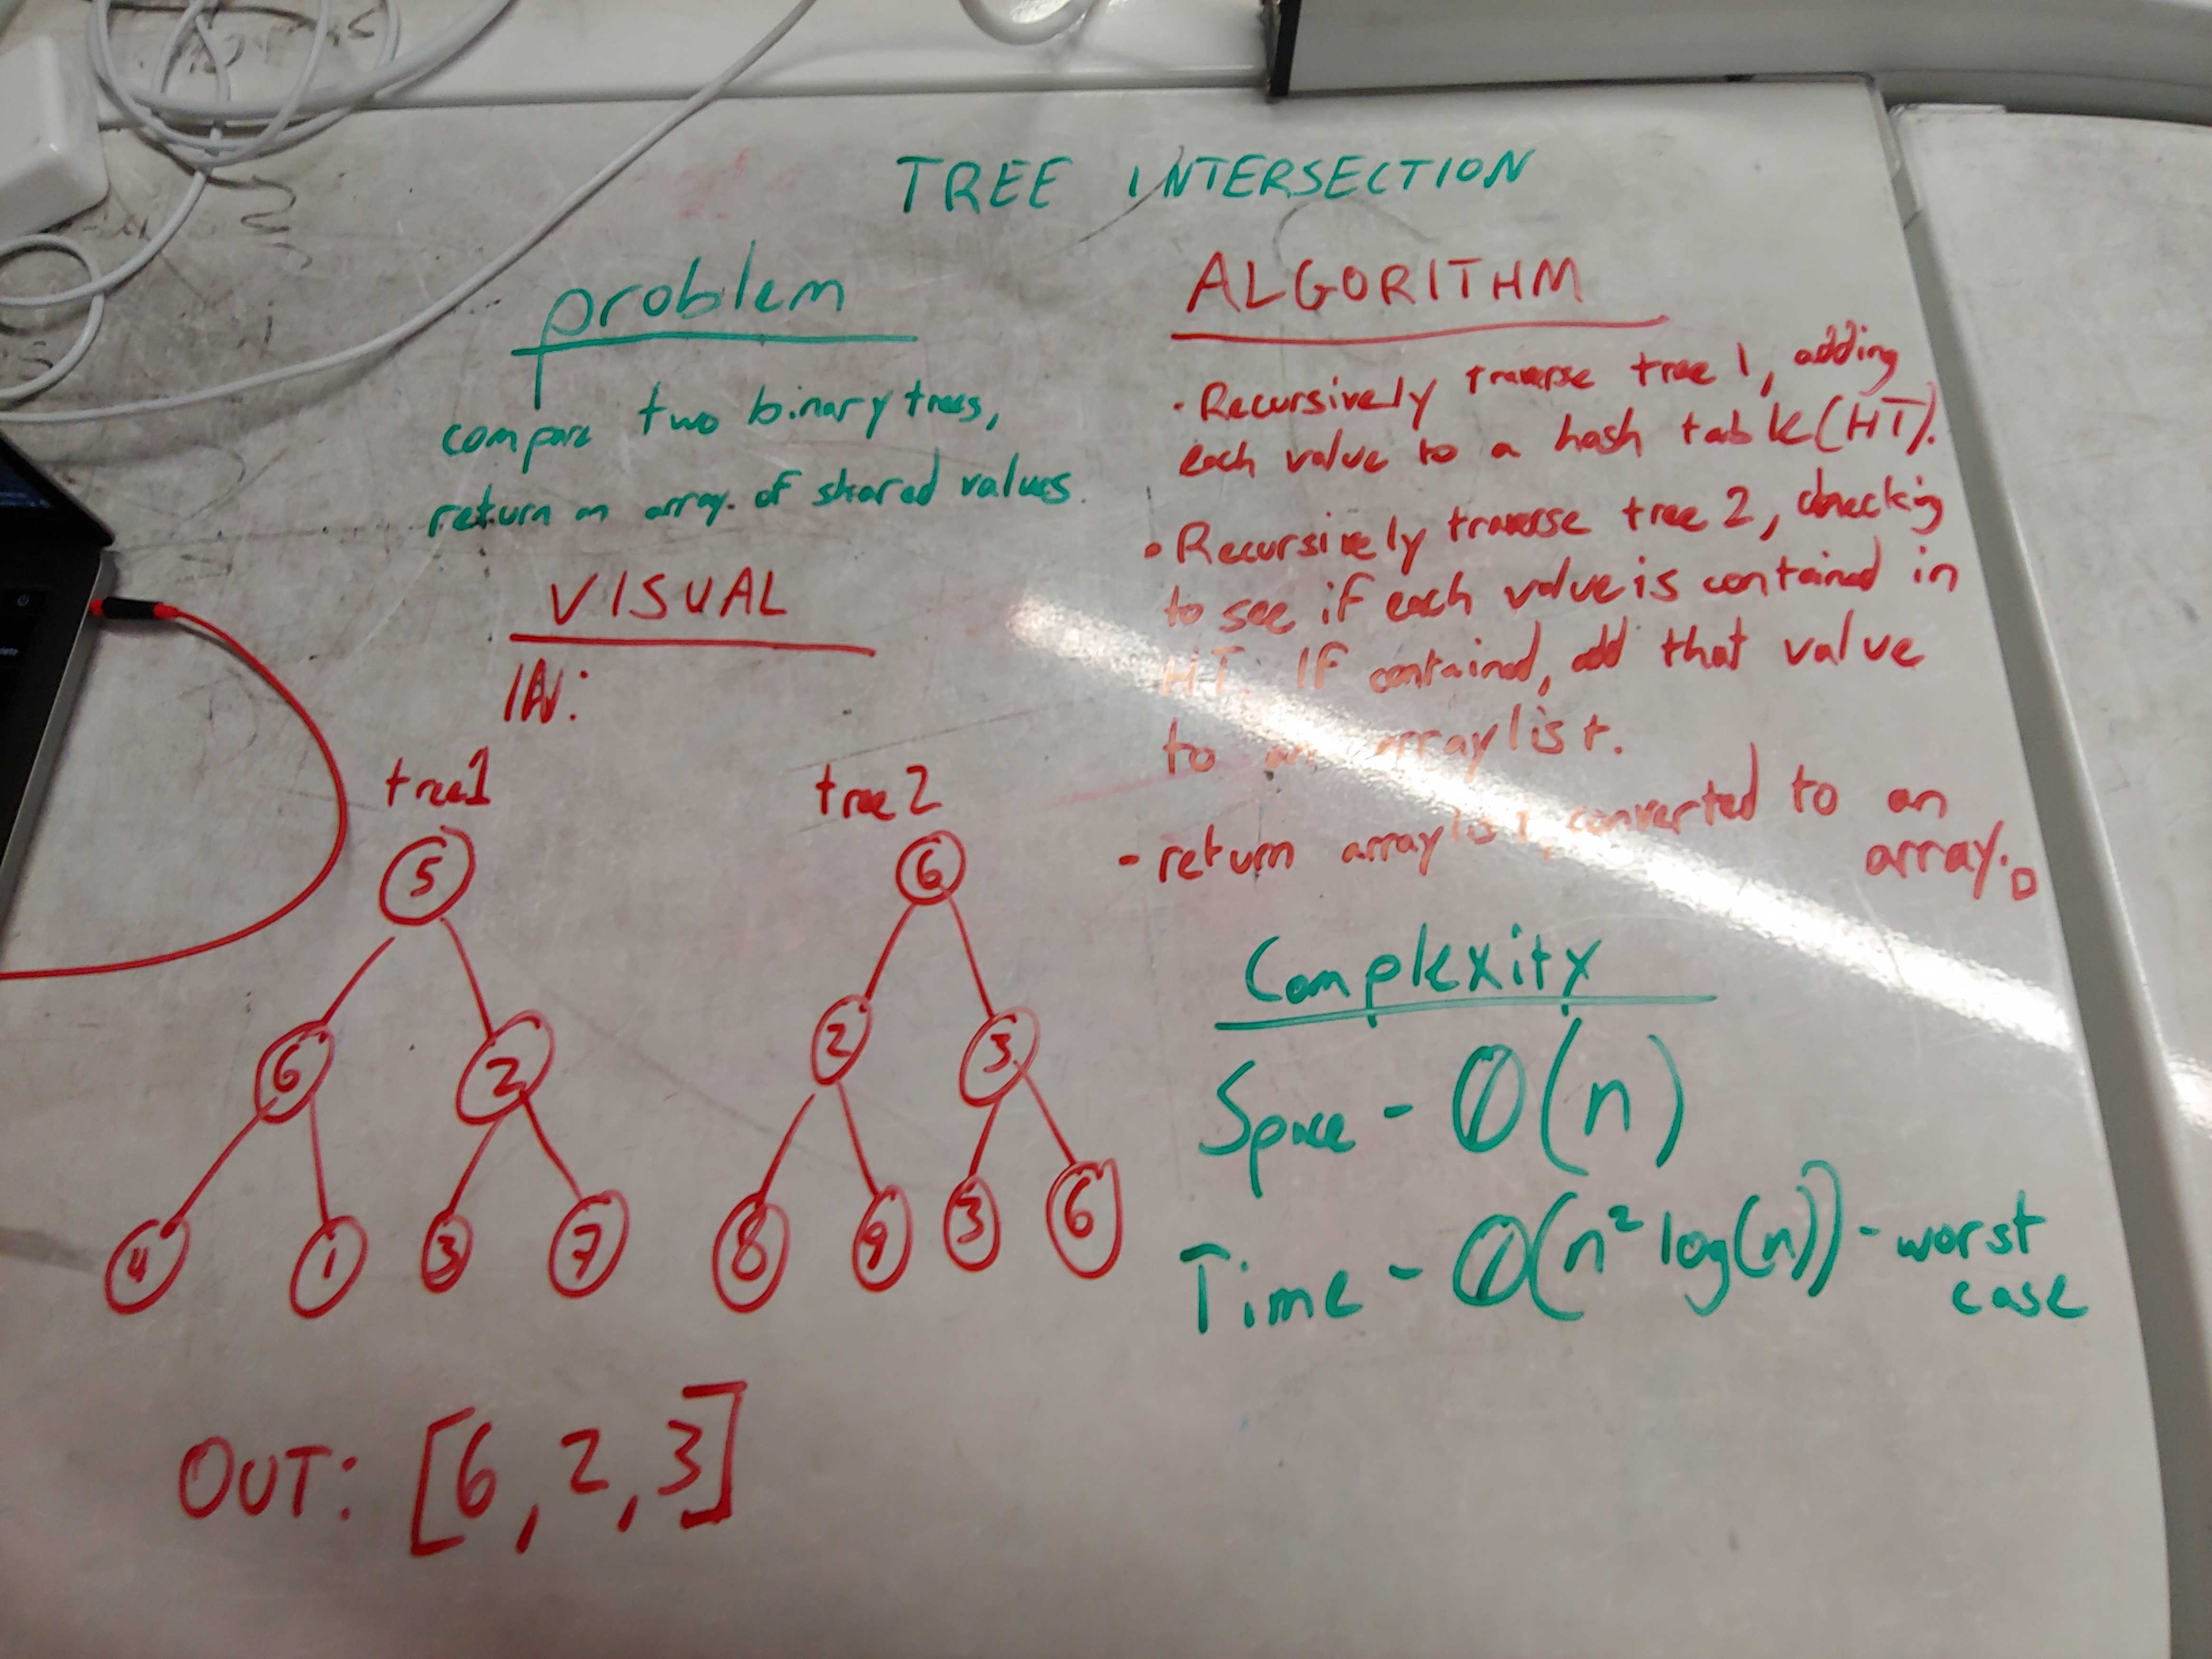 TREE INTERSECTION
problem
compare two binary trees,
return an array of shared values.
VISUAL
IN:
tree1
5
6 2
4 1 3 7
tree2
6
2 3
8 9 3 6
OUT: [6, 2, 3]
ALGORITHM
· Recursively traverse tree 1, adding
each value to a hash table (HT).
• Recursively traverse tree 2, checking
to see if each value is contained in
HT. If contained, add that value
to an arraylist.
- return arraylist, converted to an
array.
Complexity
Space - O(n)
Time - O(n² log(n)) - worst
case